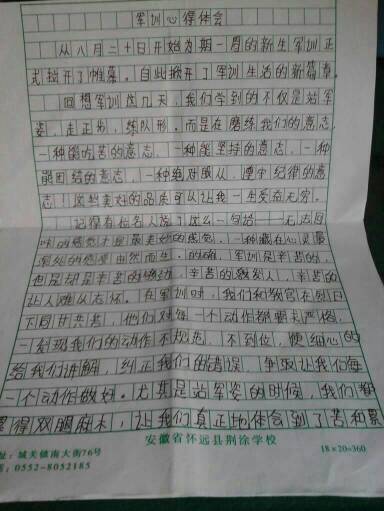 军训心得体会
从八月二十日开始为期一周的新生军训正
式拉开了帷幕。自此掀开了军训生活的新篇章。
回想军训这几天，我们学到的不仅是站军
姿，走正步，练队形。而是在磨练我们的意志，
一种能吃苦的意志，一种能坚持的意志，一种
能团结的意志，一种绝对服从，遵守纪律的意
志！这些美好的品质可以让我一生受益无穷。
记得有位名人说了这么一句话——无法回
味的感觉才是最美妙的感觉，一种藏在心灵最
深处的感受由然而生。的确，军训是辛苦的，
但是却是辛苦的 辛苦的 人，辛苦的
让人难以忘怀。在军训时，我们和教官在烈日
下同甘共苦，他们对每一个动作都要求严格，
一发现我们的动作不规范，不到位，便细心的
给我们讲解，纠正我们的错误，争取让我们每
一个动作做好。尤其是站军姿的时候，我们都
累得双腿麻木，让我们真正地体会到了苦和累
址：城关镇南大街76号
：0552-8052185
安徽省怀远县荆涂学校
18×20=360